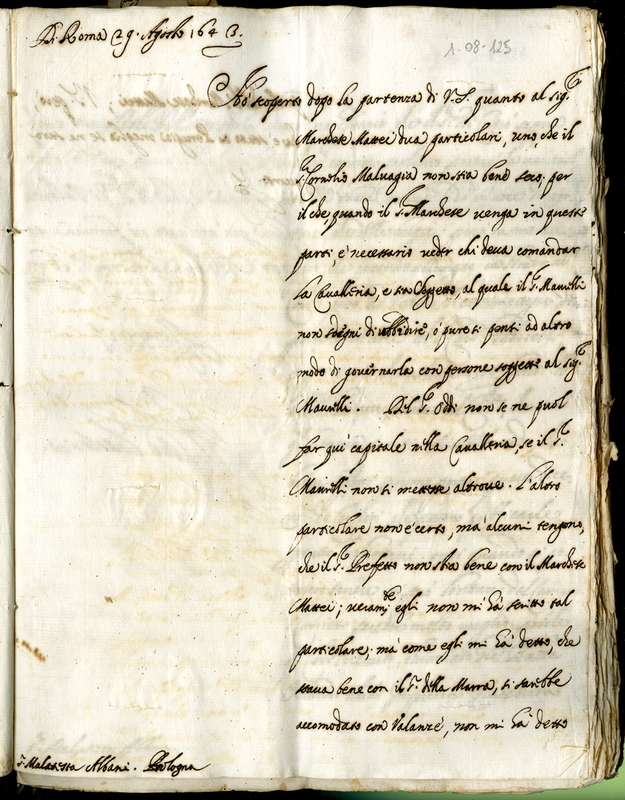 Di Roma 29. Agosto 1643.
1-08-125
Hò scoperto dopo la partenza di V.S. quanto al sig.r
Marchese Mattei dua particolari, uno, che il
S.r Cornelio Malvagia non stia bene seco; per
il che, quando il S.r Marchese venga in queste
parti, e' necessario veder chi deva comandar
la Cavalleria, e sia soggetto, al quale il S.r Mavelli
non sdegni di ubbidire, o' pure si pensi ad altro
modo di governarla con persone soggette al sig.r
Mavelli. Del S.r Oddi non se ne puol
far qui capitale nella Cavalleria, se il S.r
Mavelli non si mettesse altrove. L'altro
particolare non e' certo, ma' alcuni tengono,
che il S.r Prefetto non stia bene con il Marchese
Mattei; veram.te egli non mi hà scritto tal
particolare; ma' come egli mi hà detto, che
stava bene con il S.r della Marra, si sarebbe
accomodato con Valanzè, non mi hà detto
S.r Malatesta Albani. Bologna